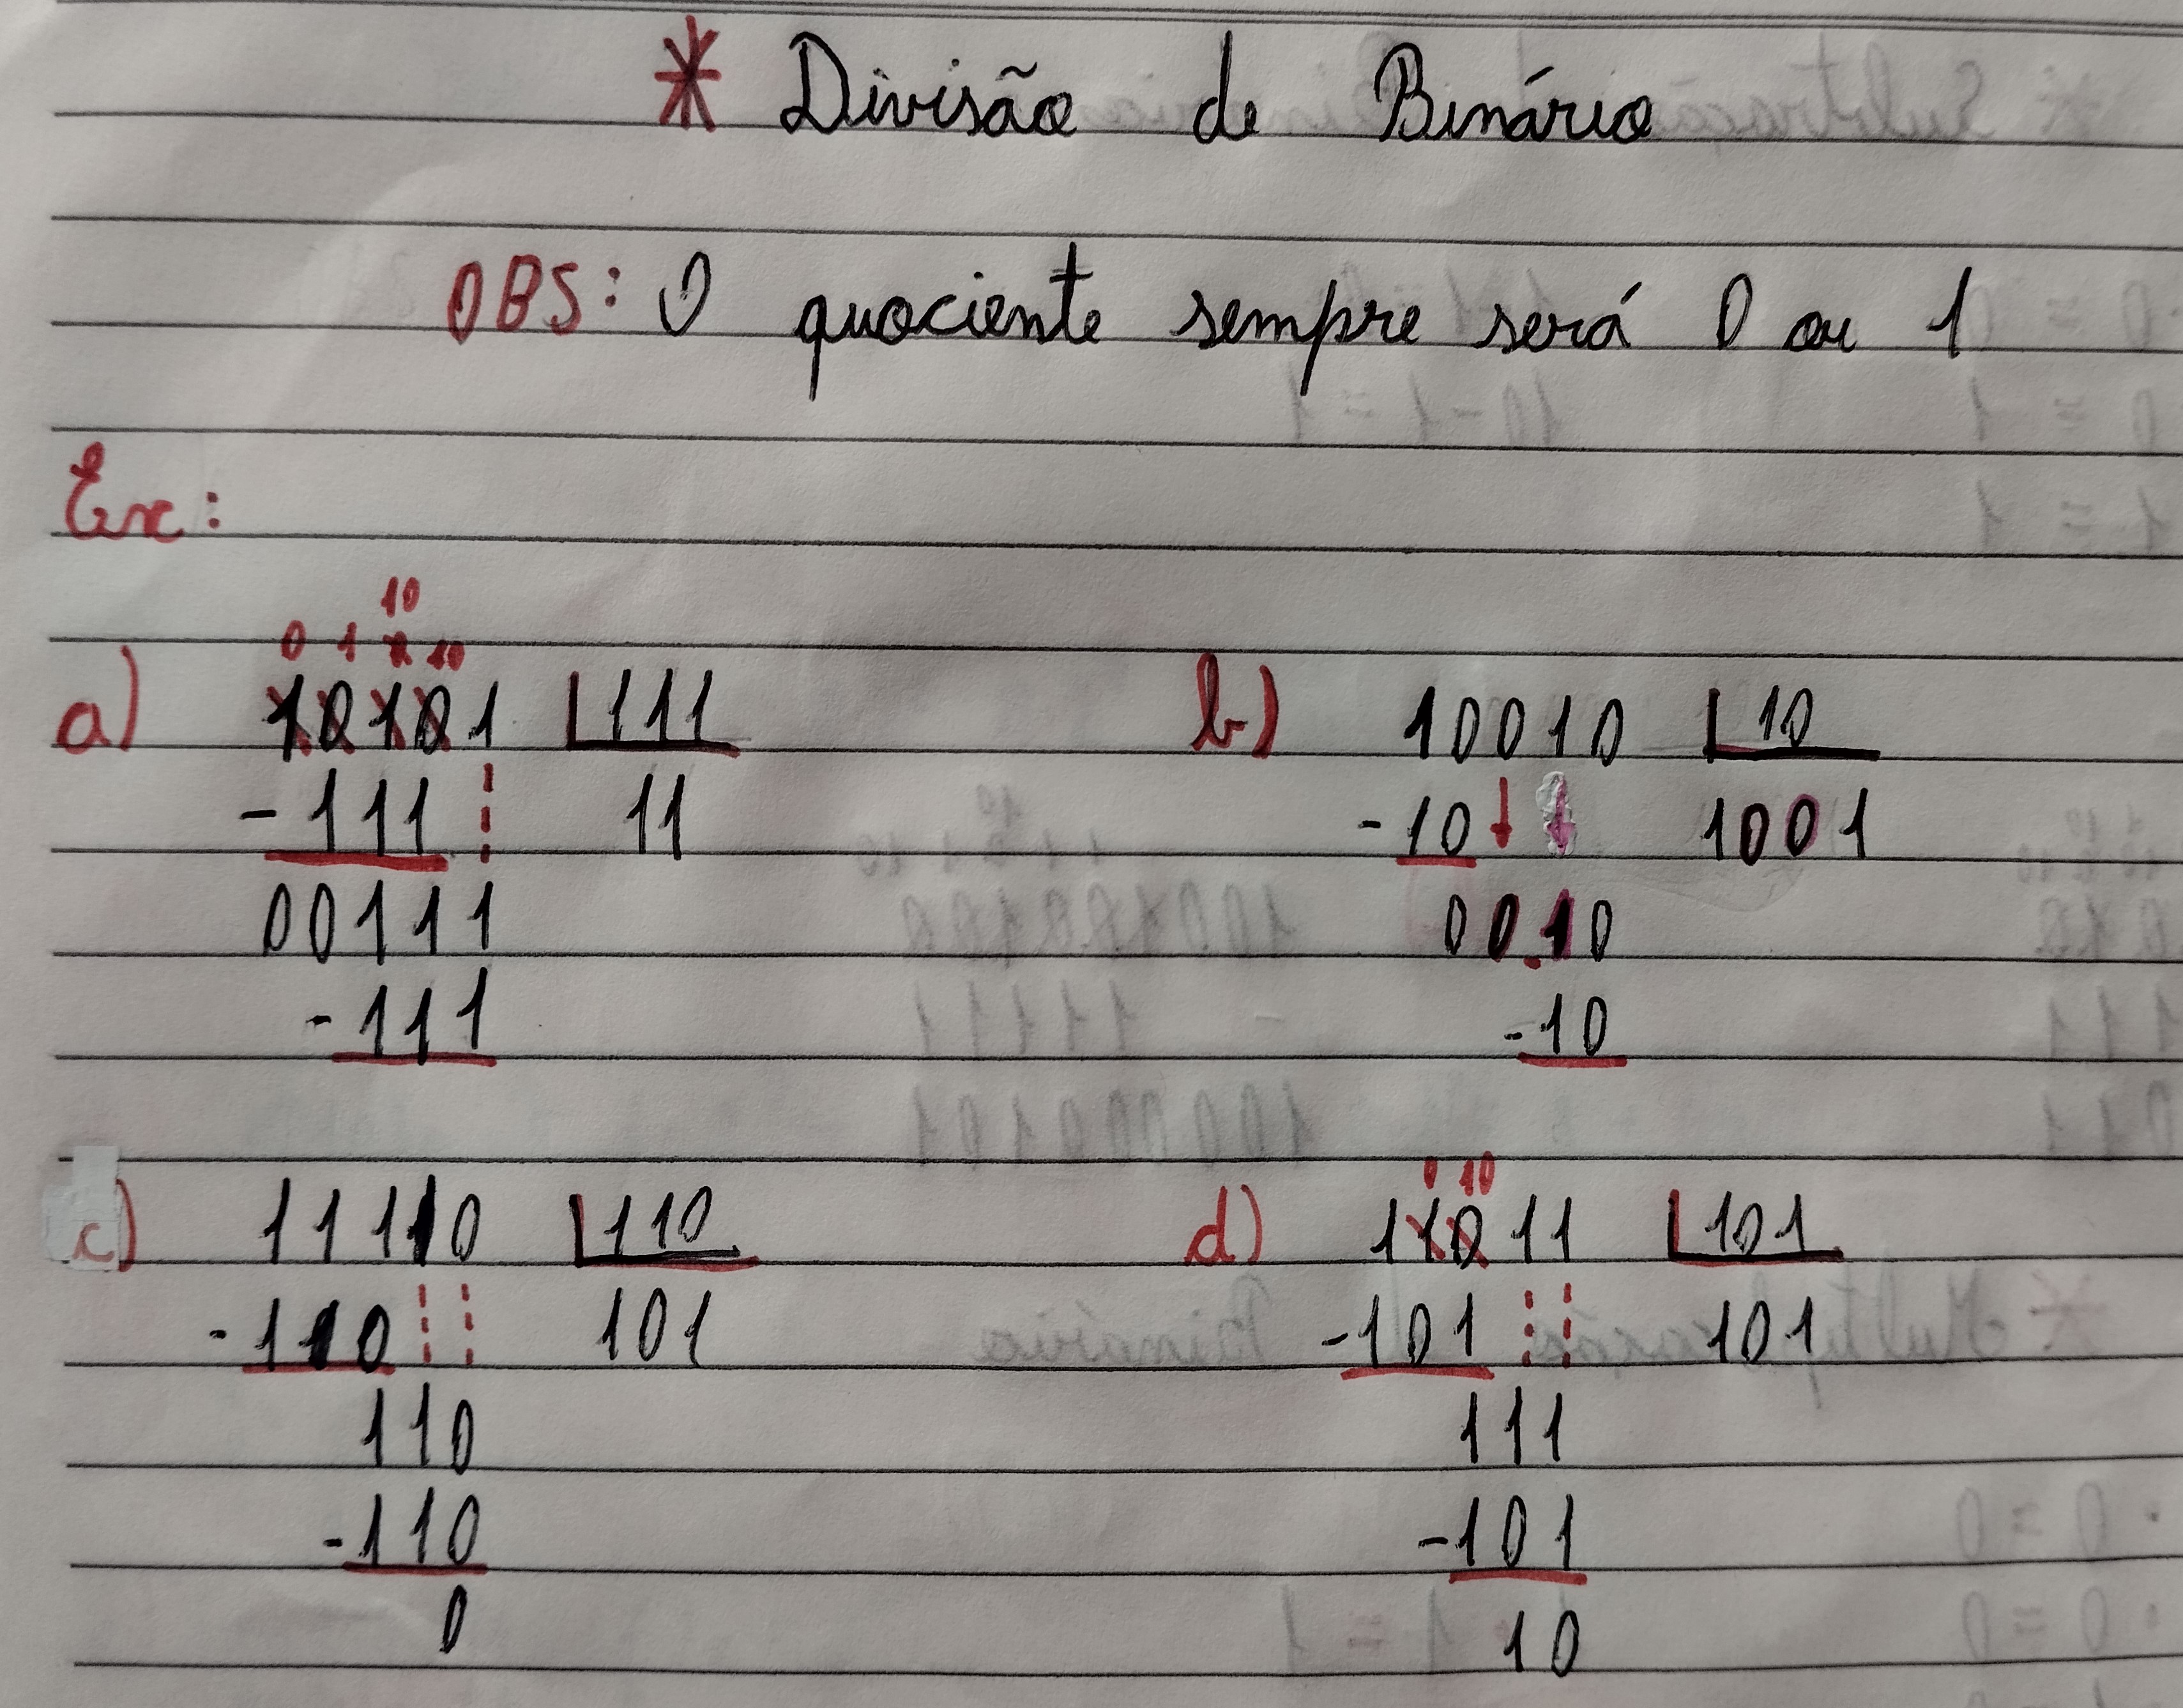 * Divisão de Binário
OBS: O quociente sempre será 0 ou 1
Ex:
10
0 1 10
a) 10101 111
- 111 11
00111
- 111
b) 10010 10
- 10 1001
0010
- 10
c) 11110 110
- 110 101
110
- 110
0
0 10
d) 11011 101
- 101 101
111
- 101
10